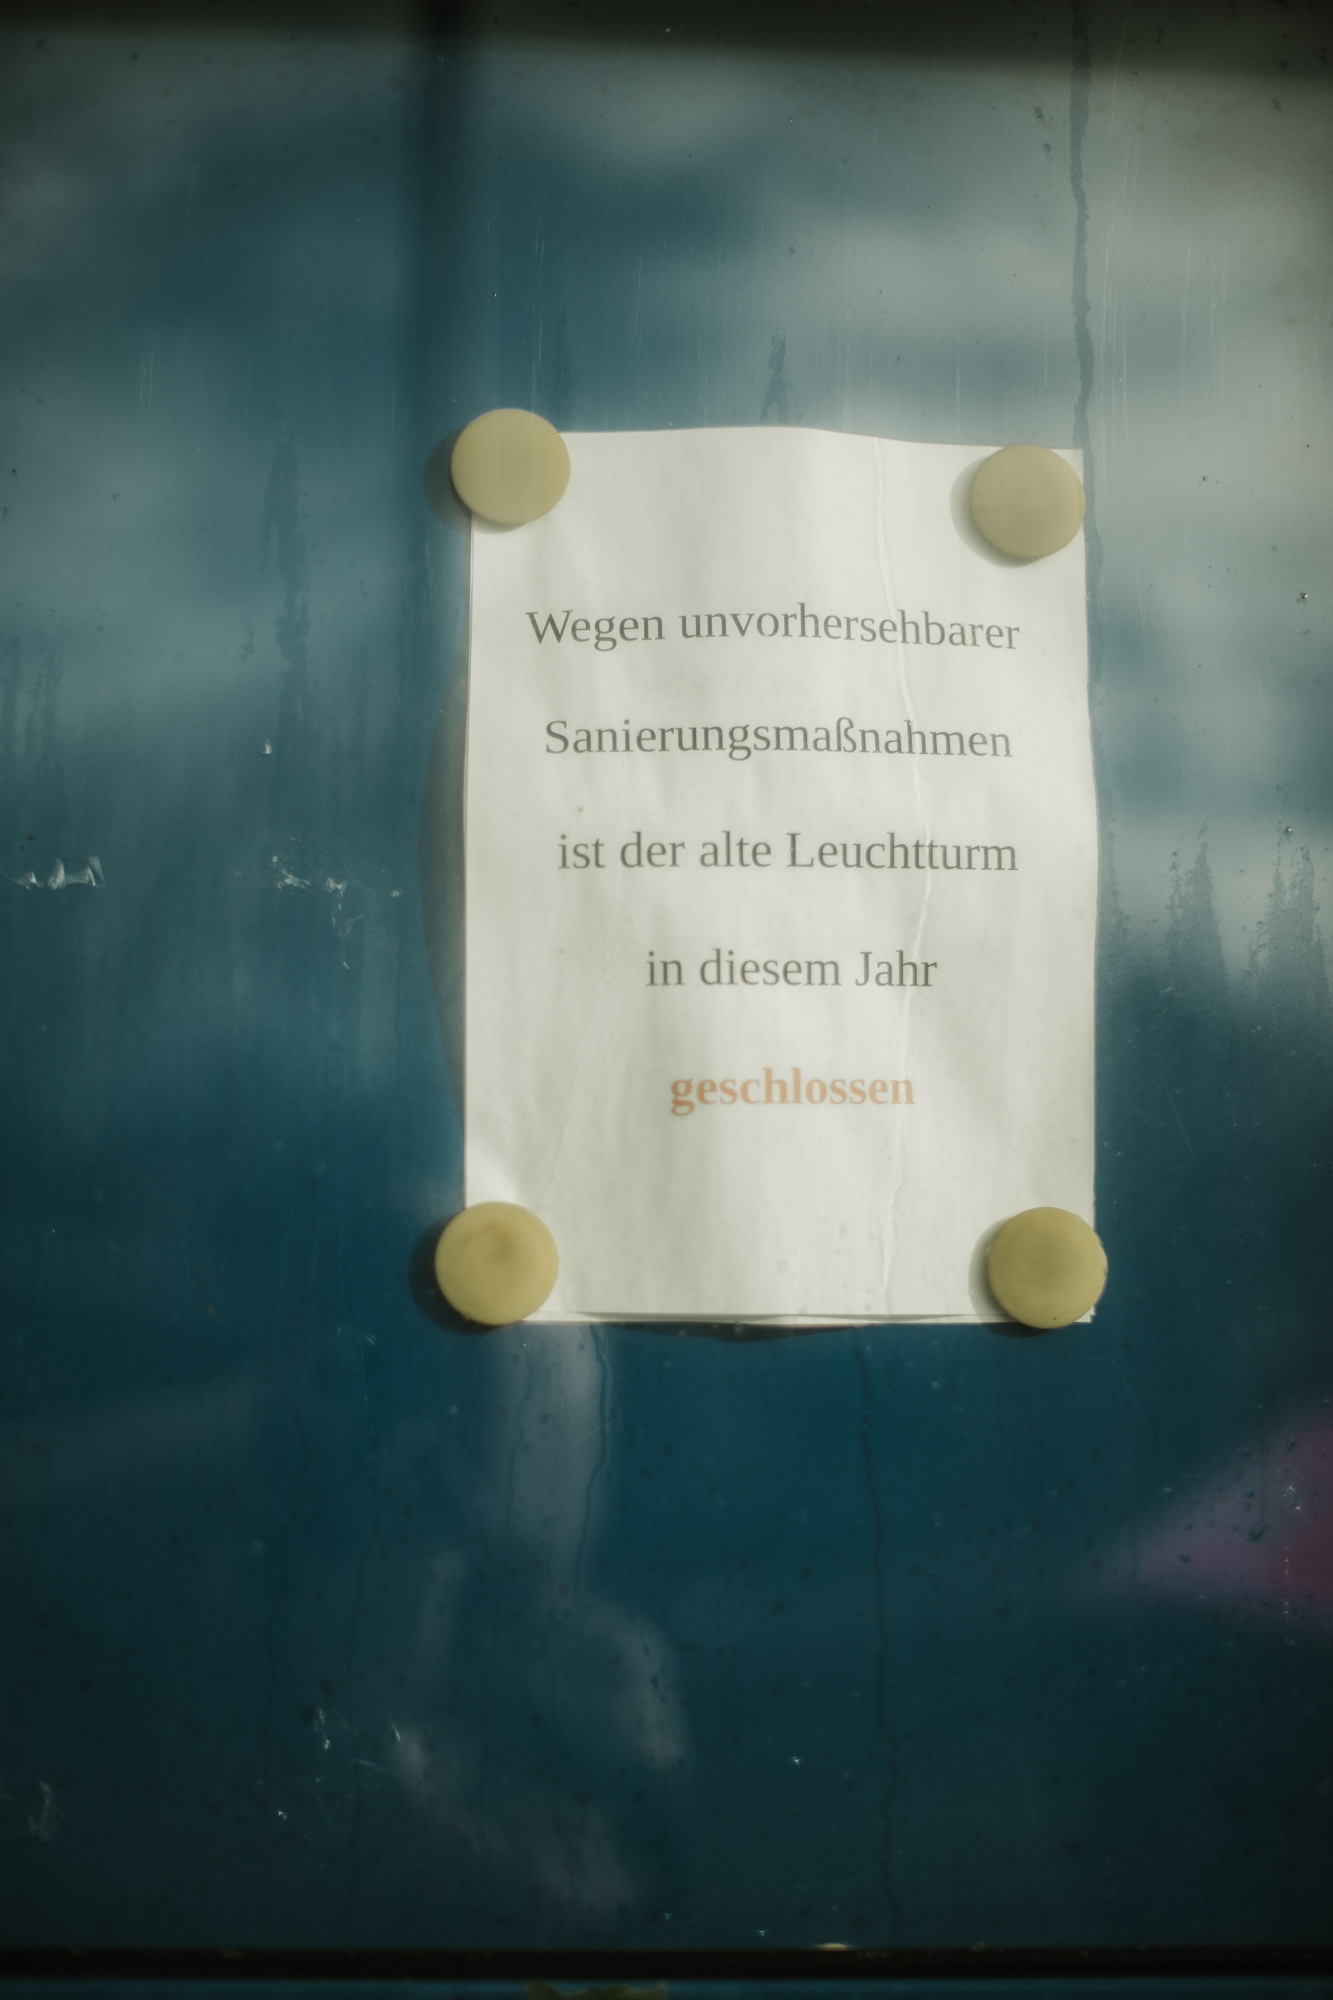 Wegen unvorhersehbarer
Sanierungsmaßnahmen
ist der alte Leuchtturm
in diesem Jahr
geschlossen